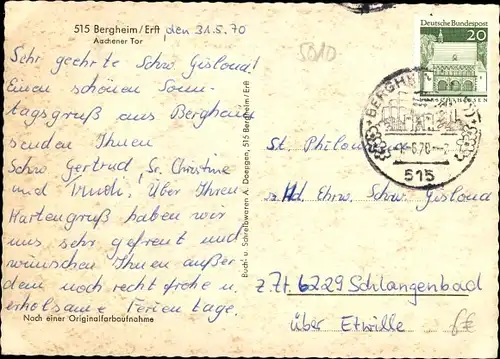 515 Bergheim/Erft, den 31.5.70
Aachener Tor
Sehr geehrte Schw. Gislona!
Einen schönen Sonn-
tagsgruß aus Bergheim
senden Ihnen
Schw. Gertrud, Sr. Christine
und . Über Ihren
Kartengruß haben wir
uns sehr gefreut und
wünschen Ihnen außer
dem noch recht frohe u.
erholsame Ferientage.
Noch einer Originalfarbaufnahme
Buch- u. Schreibwaren A. Doepgen, 515 Bergheim/Erft
5010
Deutsche Bundespost
20
LORSCH/HESSEN
BERGHEIM
-1.-6.70-
515
St.
Ehrw. Schw. Gislona
z.Zt. 6229 Schlangenbad
über Eltville
6€